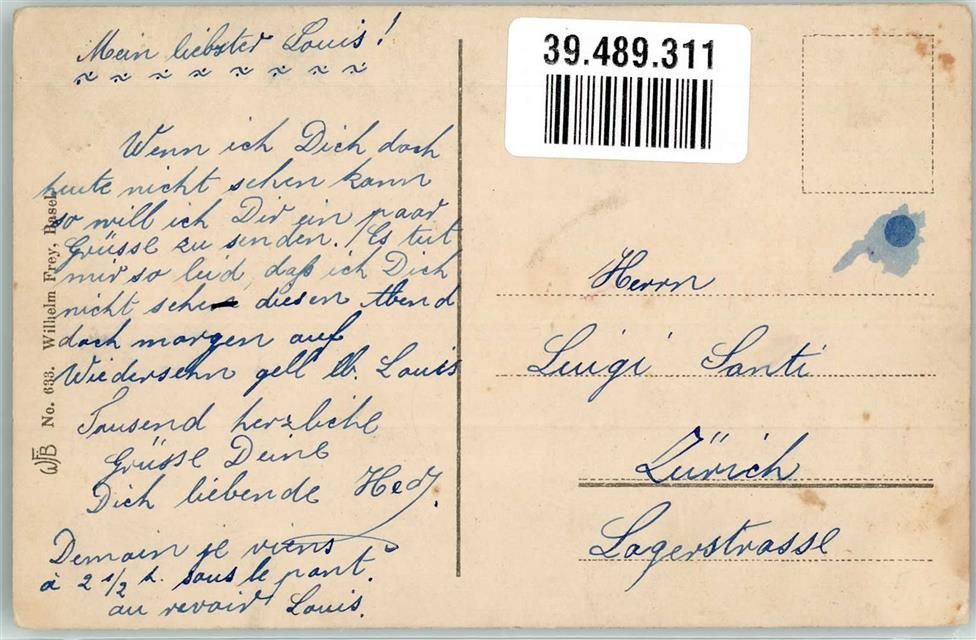 Mein liebster Louis!
Wenn ich Dich doch
heute nicht sehen kann
so will ich Dir ein paar
Grüsse zu senden. Es tut
mir so leid, daß ich Dich
nicht sehe diesen Abend
doch morgen auf
Wiedersehn gell lb. Louis
Tausend herzliche
Grüsse Deine
Dich liebende Hedy.
Demain je viens
à 2 1/2 h. sous le pont.
au revoir Louis.
WFB No. 633. Wilhelm Frey, Basel
39.489.311
Herrn
Luigi Santi
Zürich
Lagerstrasse